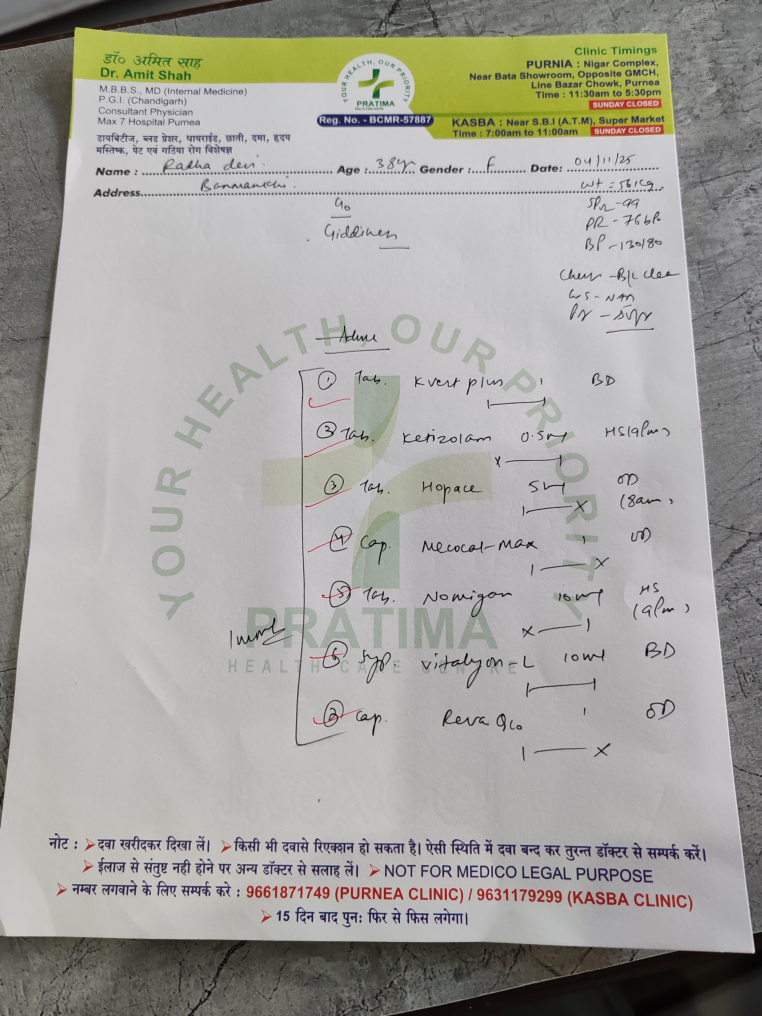 डॉ० अमित साह
Dr. Amit Shah
M.B.B.S., MD (Internal Medicine)
P.G.I. (Chandigarh)
Consultant Physician
Max 7 Hospital Purnea
डायबिटीज, ब्लड प्रेशर, थायराईड, छाती, दमा, हृदय
मस्तिष्क, पेट एवं गठिया रोग विशेषज्ञ
YOUR HEALTH, OUR PRIORITY
PRATIMA
HEALTH CARE CENTRE
Reg. No. - BCMR-57887
Clinic Timings
PURNIA : Nigar Complex,
Near Bata Showroom, Opposite GMCH,
Line Bazar Chowk, Purnea
Time : 11:30am to 5:30pm
SUNDAY CLOSED
KASBA : Near S.B.I (A.T.M), Super Market
Time : 7:00am to 11:00am SUNDAY CLOSED
Name : Radha devi Age : 38yr Gender : F Date: 04/11/25
Address Banmankhi
Wt = 56kg
SPO2 - 99
PR - 76
BP - 130/80
C/o
Giddiness
Chest - B/L clear
- NAD
Advise
① Tab. Kvert plus 1 BD
② Tab. Ketizolam 0.5mg HS (9pm)
X 1
③ Tab. Hopace 5mg OD
(8am)
1 X
④ Cap. Mecocal-Max 1 OD
1 X
⑤ Tab. Nomigon 10mg HS
(9pm)
X 1
⑥ Syp. Vitalyon-L 10ml BD
Cap. Reva Q10 1 OD
1 X
YOUR HEALTH, OUR PRIORITY
PRATIMA
HEALTH CARE CENTRE
नोट : दवा खरीदकर दिखा लें। किसी भी दवासे रिएक्शन हो सकता है। ऐसी स्थिति में दवा बन्द कर तुरन्त डॉक्टर से सम्पर्क करें।
ईलाज से संतुष्ट नही होने पर अन्य डॉक्टर से सलाह लें। NOT FOR MEDICO LEGAL PURPOSE
नम्बर लगवाने के लिए सम्पर्क करे : 9661871749 (PURNEA CLINIC) / 9631179299 (KASBA CLINIC)
15 दिन बाद पुनः फिर से फिस लगेगा।